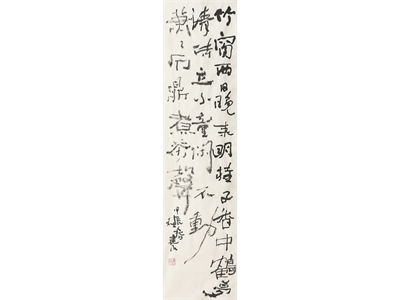 竹窗西日晚来明桂子香中鹤梦
清侍立小童闲不动
萧萧石鼎煮茶声